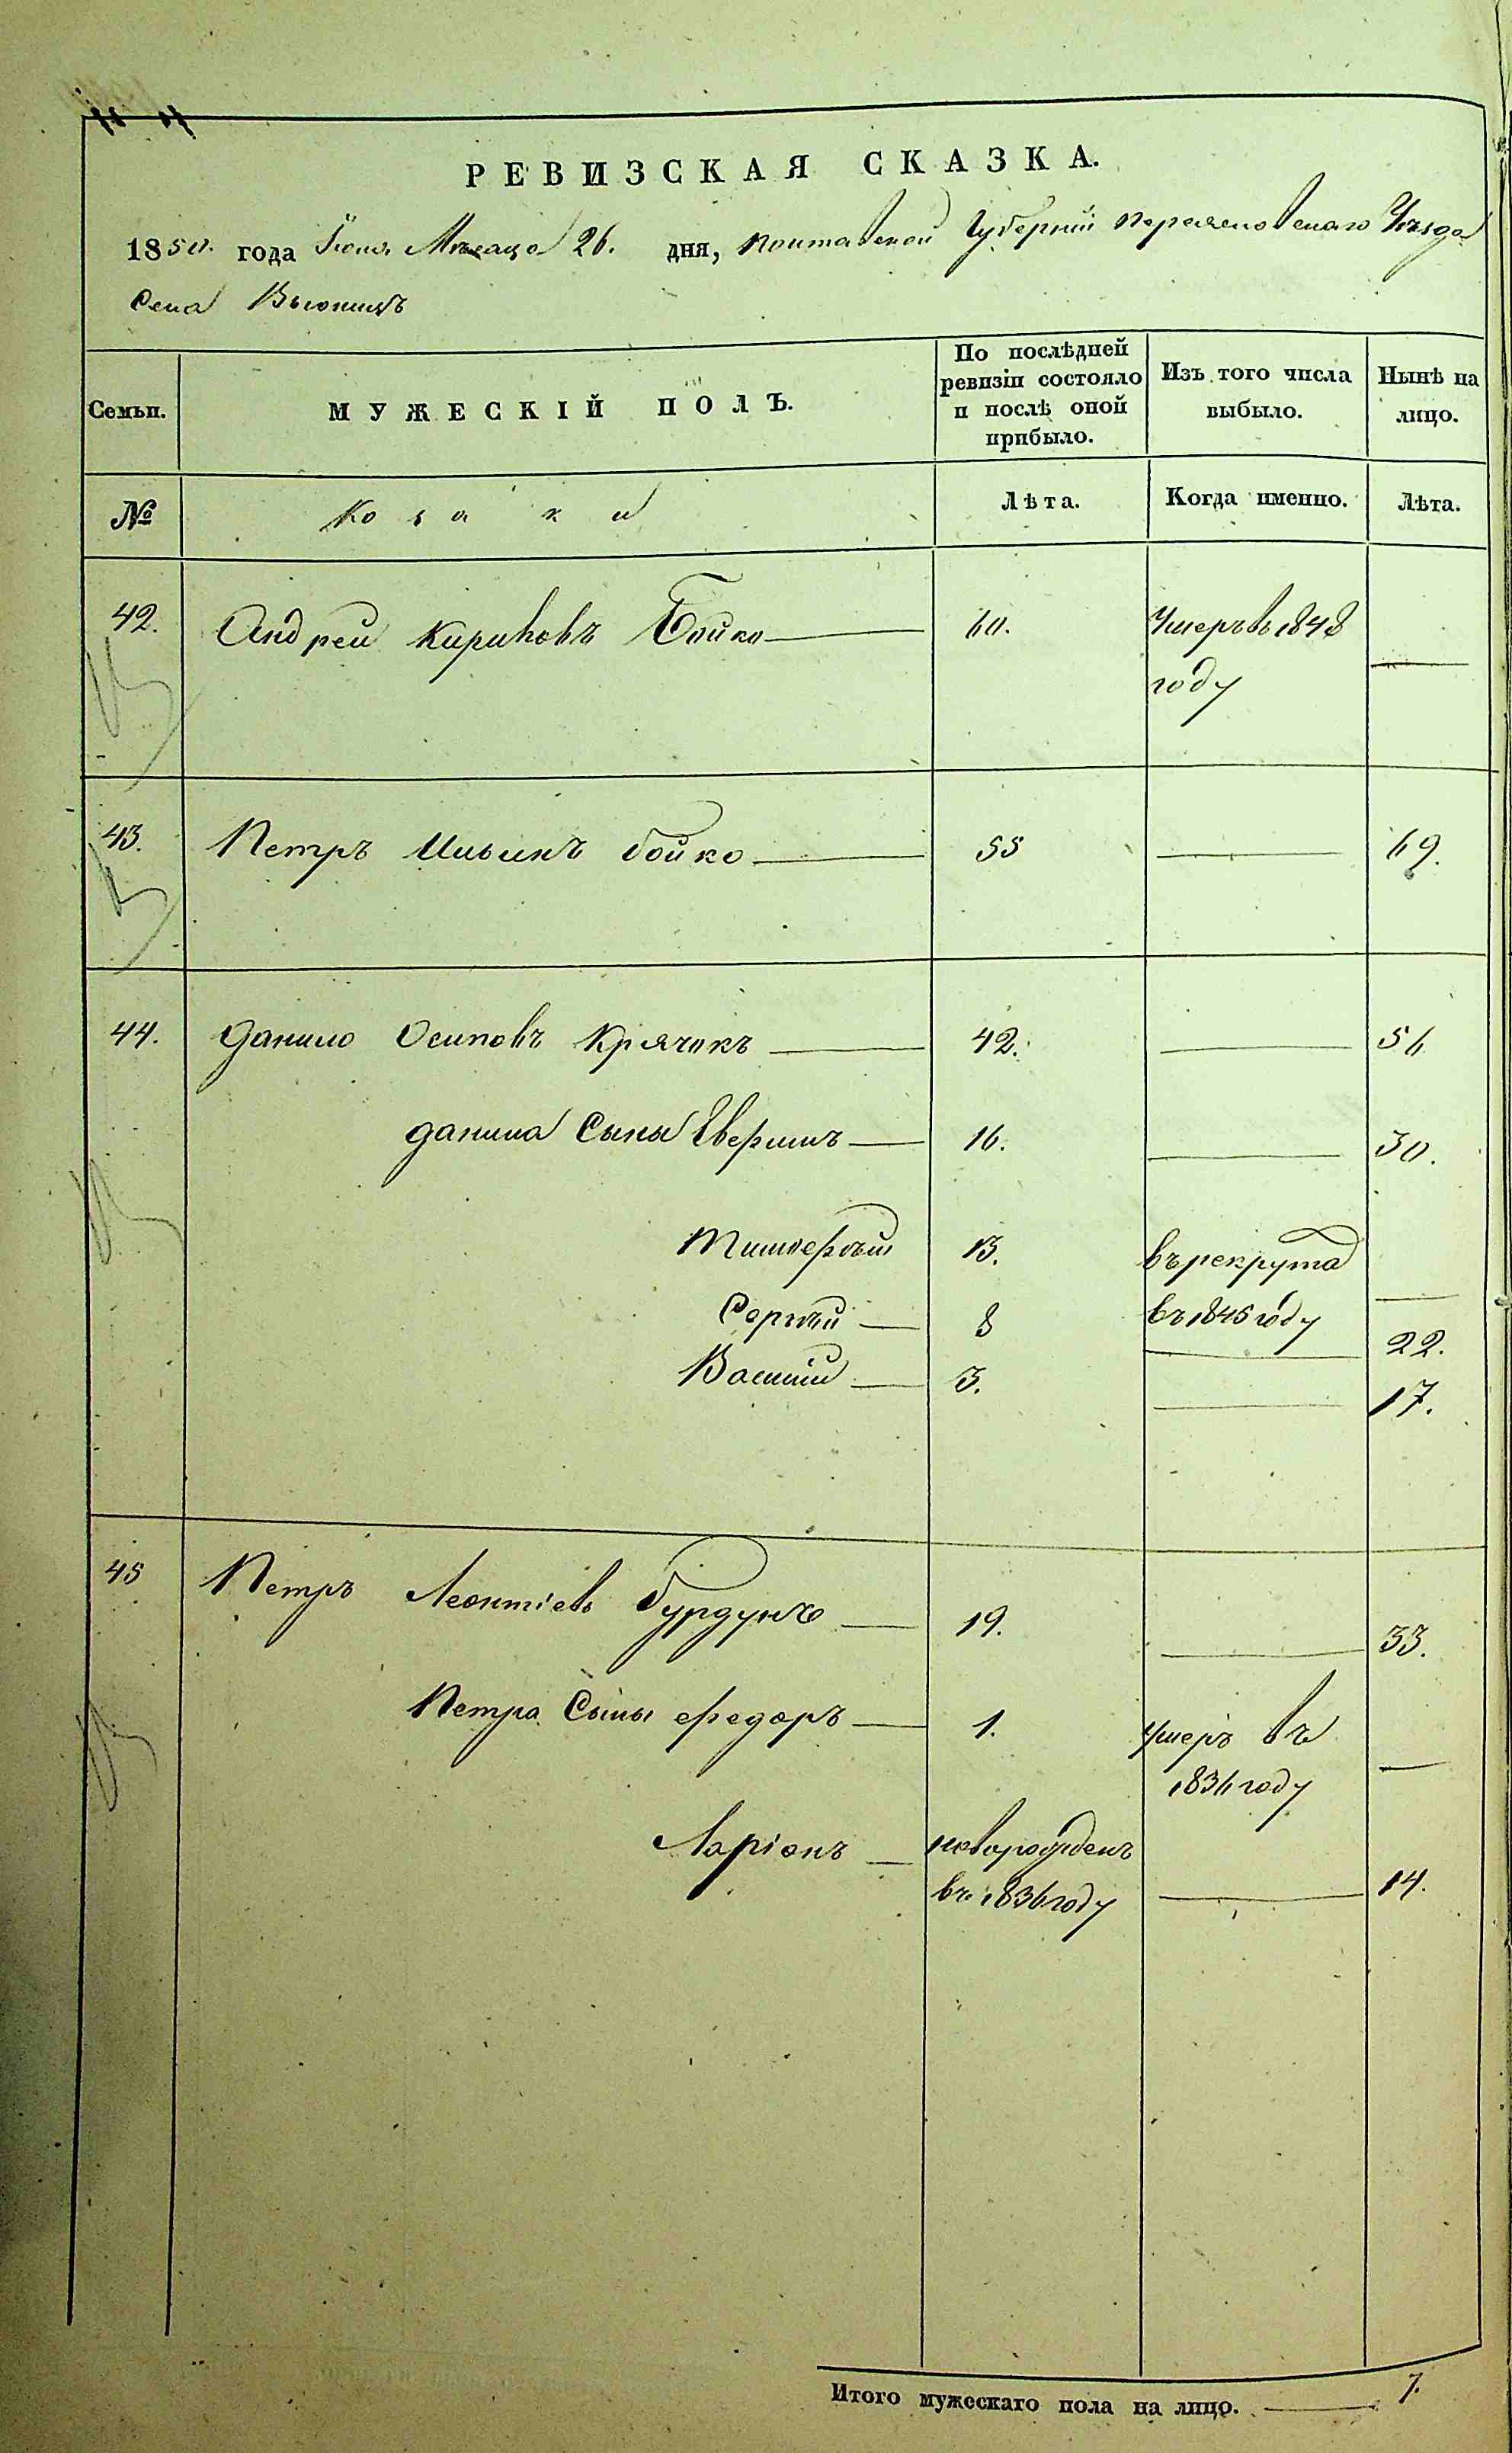 РЕВИЗСКАЯ СКАЗКА.
1850. года Іюня Мѣсяца 26. дня, Полтавской Губерніи Переясловскаго Уѣзда
Села
МУЖЕСКІЙ ПОЛЪ.
Семьи.
По послѣдней
ревизіи состояло
и послѣ оной
прибыло.
Изъ того числа
выбыло.
Нынѣ на
лицо.
№
Козаки
Лѣта.
Когда именно.
Лѣта.
42. Андрей Кириковъ Бойко — 60. Умеръ въ 1848 —
году
43. Петръ Ильинъ бойко — 55 — 69.
44. Данило Осиповъ Крячокъ — 42. — 56
Данила Сыны — 16. — 30.
Тимофѣй 13. въ рекрута
Сергѣй — 8 въ 1845 году —
22.
Василій — 3. — 17.
45 Петръ Леонтіевъ бурдунъ — 19. — 33.
Петра Сыны федоръ — 1. умеръ въ
1836 году —
Ларіонъ — новорожденъ
въ 1836 году — 14.
Итого мужескаго пола на лицо. — 7.